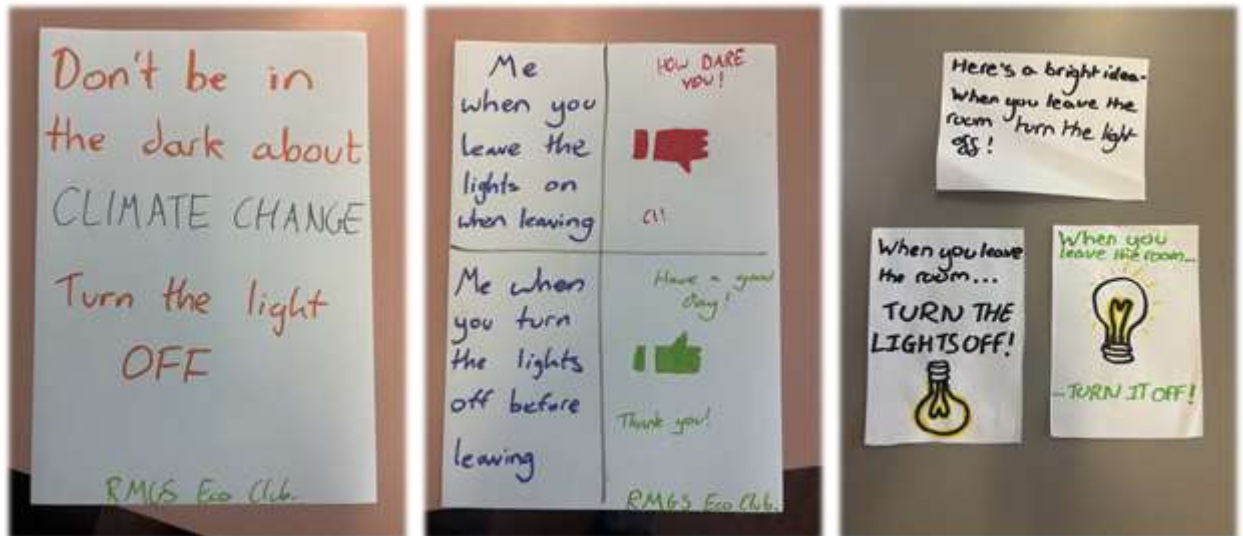 Don't be in
the dark about
CLIMATE CHANGE
Turn the light
OFF
RMGS Eco Club.
Me
when you
leave the
lights on
when leaving
HOW DARE
YOU!
Me when
you turn
the lights
off before
leaving
Have a good
day!
Thank you!
RMGS Eco Club.
Here's a bright idea-
When you leave the
room turn the light
off!
When you leave
the room...
TURN THE
LIGHTS OFF!
When you
leave the room...
...TURN IT OFF!